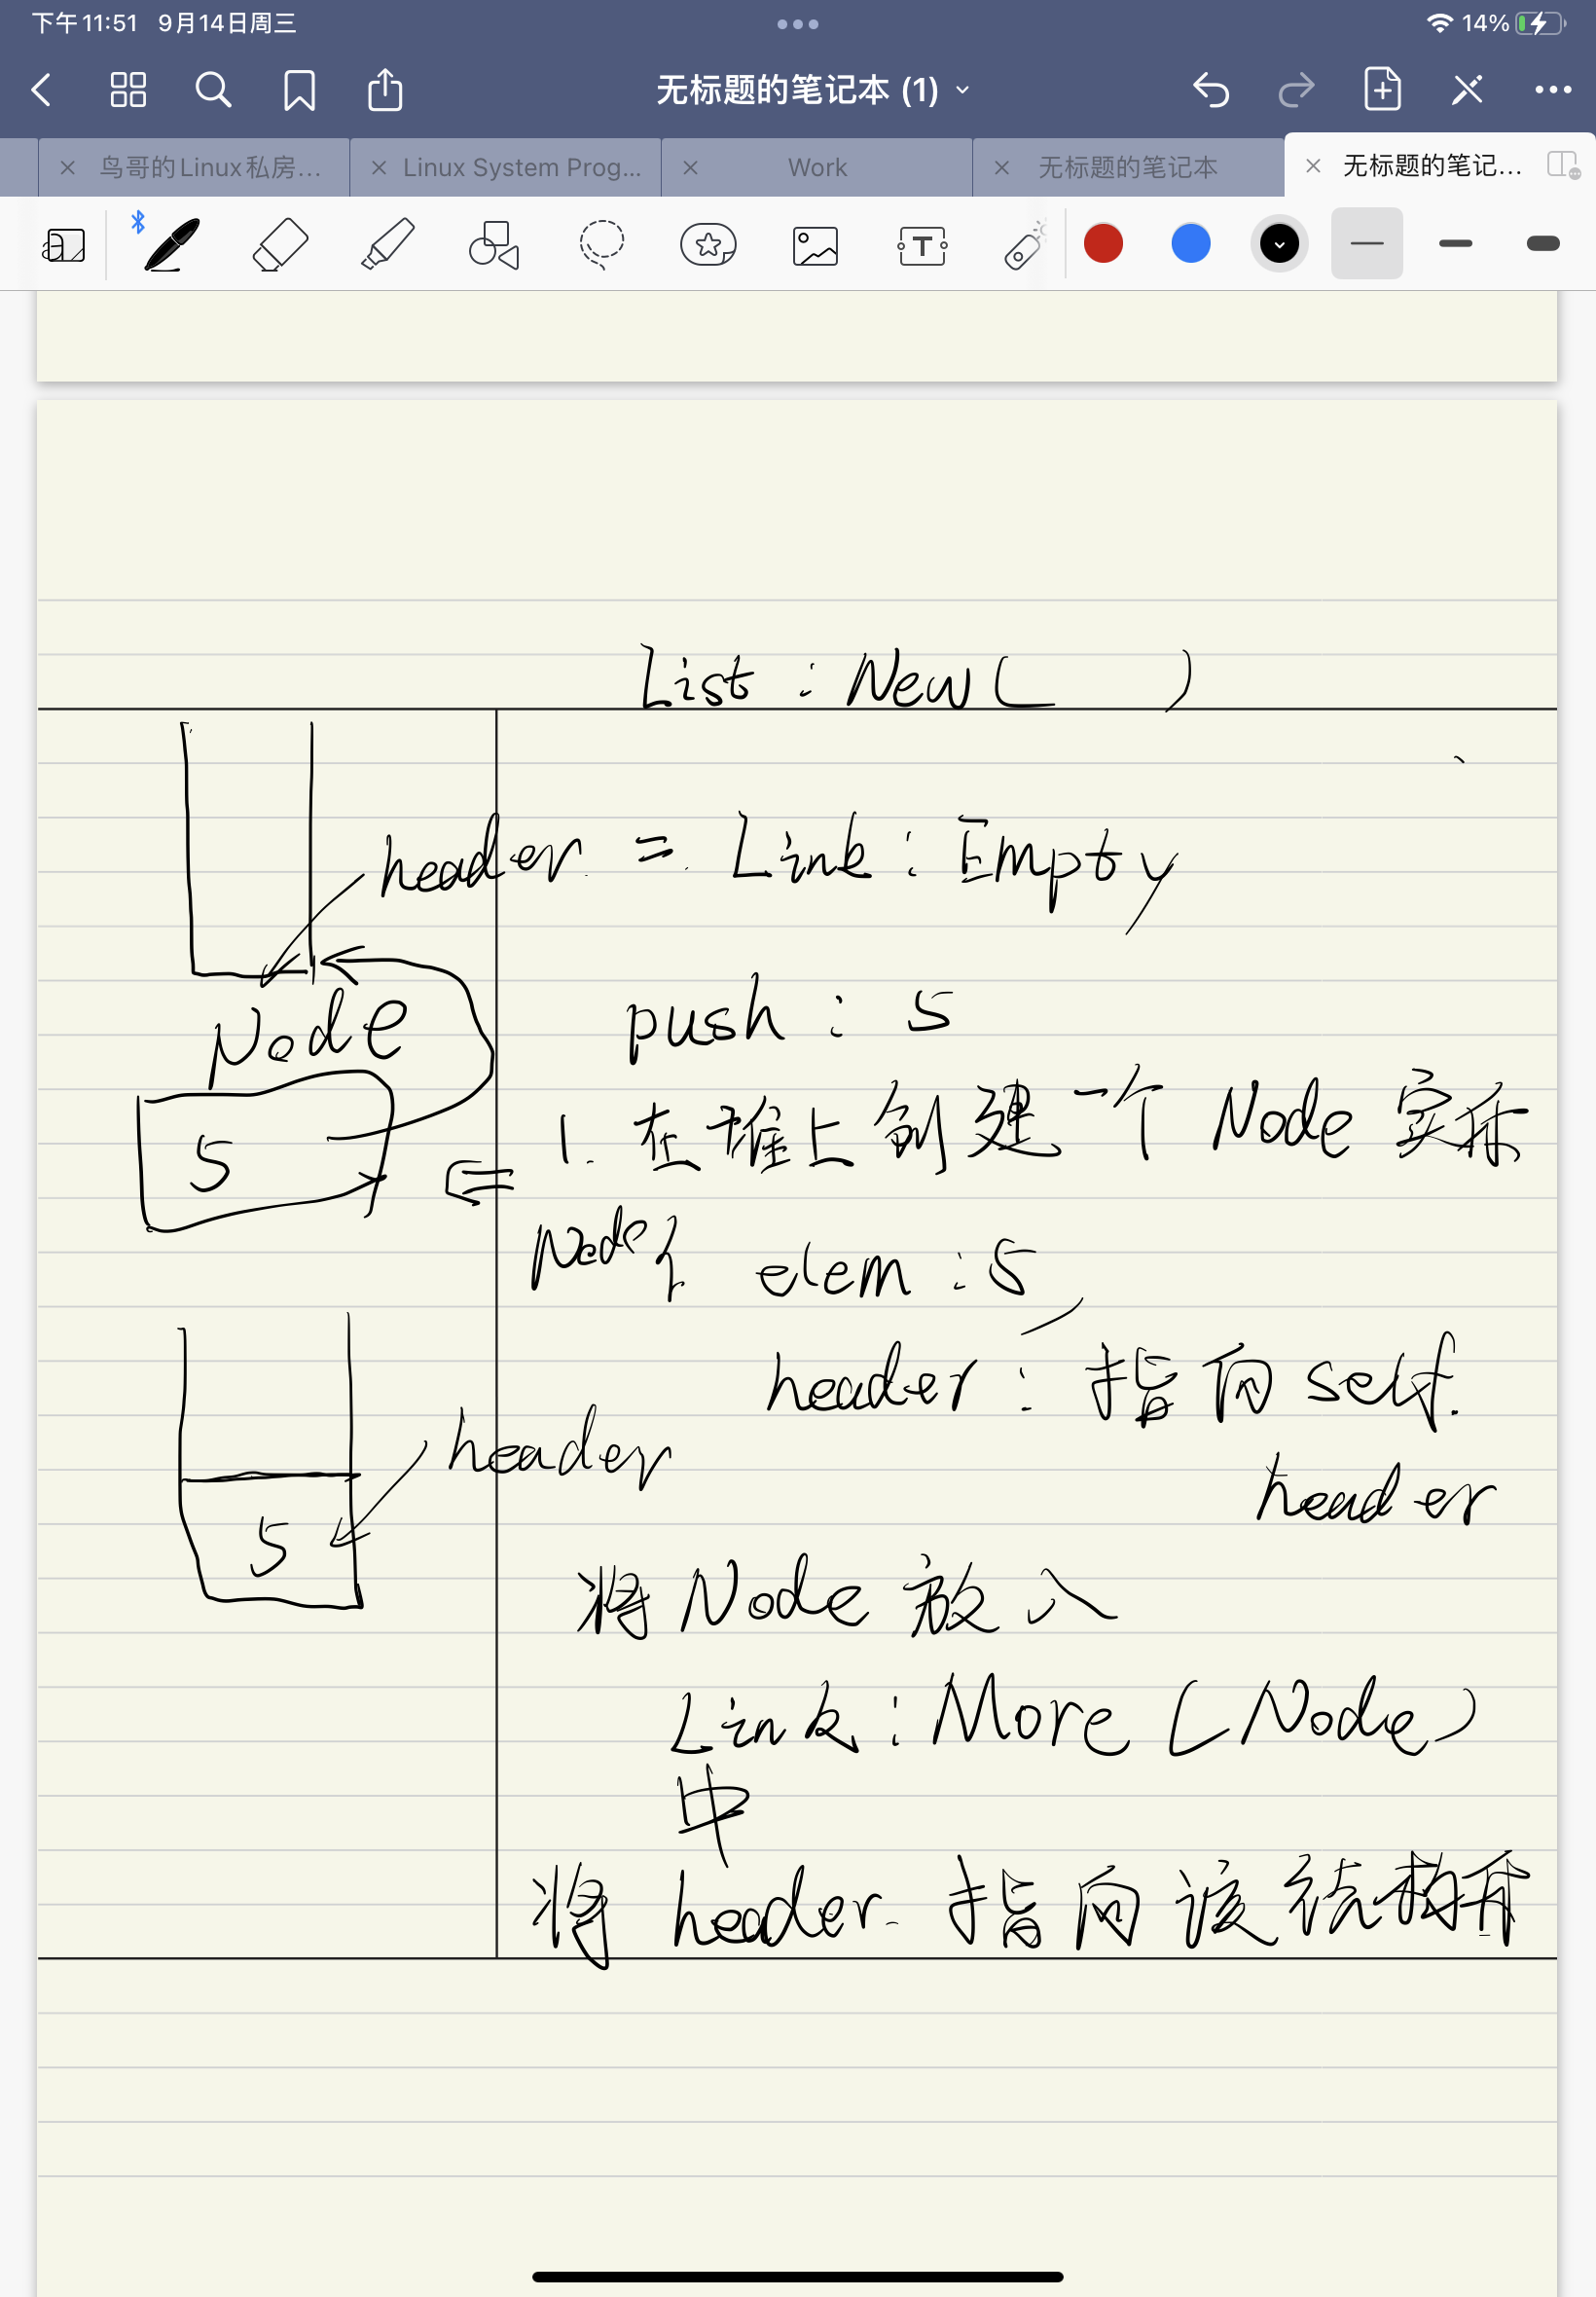 下午11:51 9月14日周三
14%
无标题的笔记本 (1)
鸟哥的Linux私房... Linux System Prog... Work 无标题的笔记本 无标题的笔记...
List : New ( )
header = Link : Empty
push : 5
Node
1. 在堆上创建一个 Node 实体
5
Node { elem : 5,
header : 指向 self.
header
header
5
将 Node 放入
Link : More (Node)
中
将 header 指向该结构体